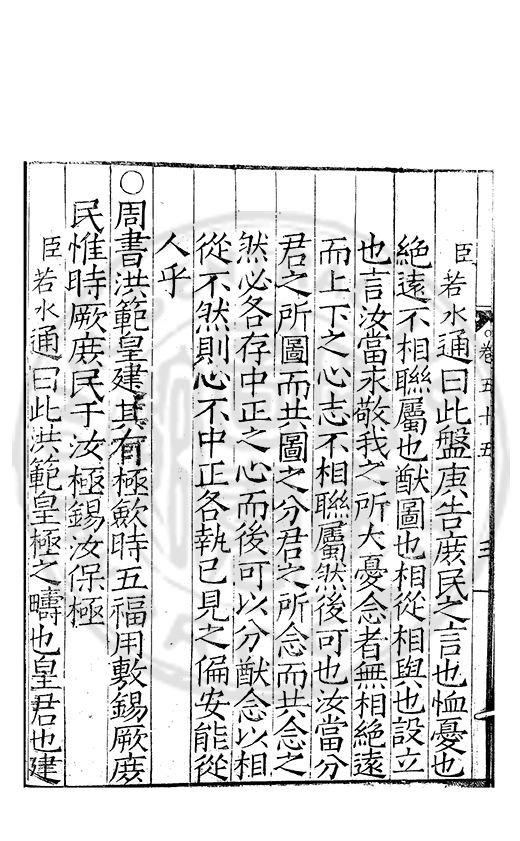 臣若水通曰此盤庚告庶民之言也恤憂也
絶遠不相聯屬也猷圖也相從相與也設立
也言汝當永敬我之所大憂念者無相絶遠
而上下之心志不相聯屬然後可也汝當分
君之所圖而共圖之分君之所念而共念之
然必各存中正之心而後可以分猷念以相
從不然則心不中正各執己見之偏安能從
人乎
○周書洪範皇建其有極歛時五福用敷錫厥庶
民惟時厥庶民于汝極錫汝保極
臣若水通曰此洪範皇極之疇也皇君也建
卷五十五
三